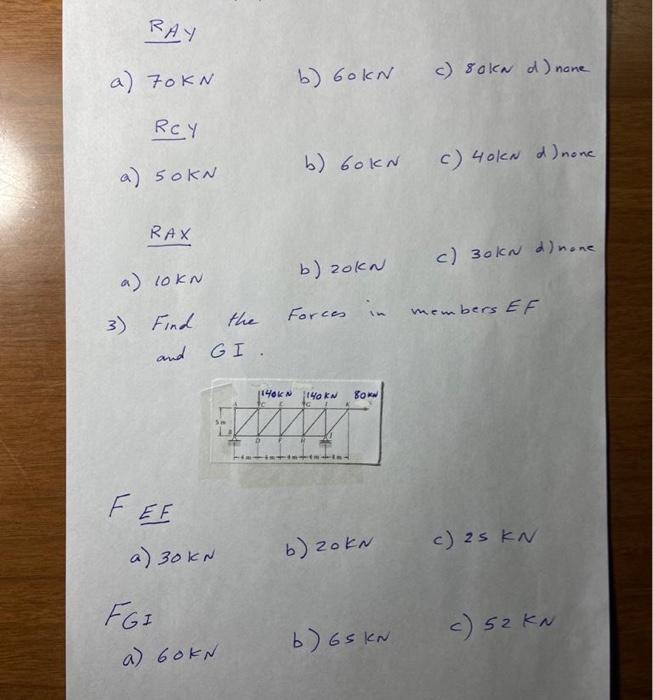 RAY
a) 70KN b) 60KN c) 80KN d) none
RCY
a) 50KN b) 60KN c) 40KN d) none
RAX
a) 10KN b) 20KN c) 30KN d) none
3) Find the Forces in members EF
and GI.
140KN 140KN 80KN
A C E G I K
5m
B D F H J
4m 4m 4m 4m 4m
F EF
a) 30KN b) 20KN c) 25 KN
FGI
a) 60KN b) 65 KN c) 52 KN